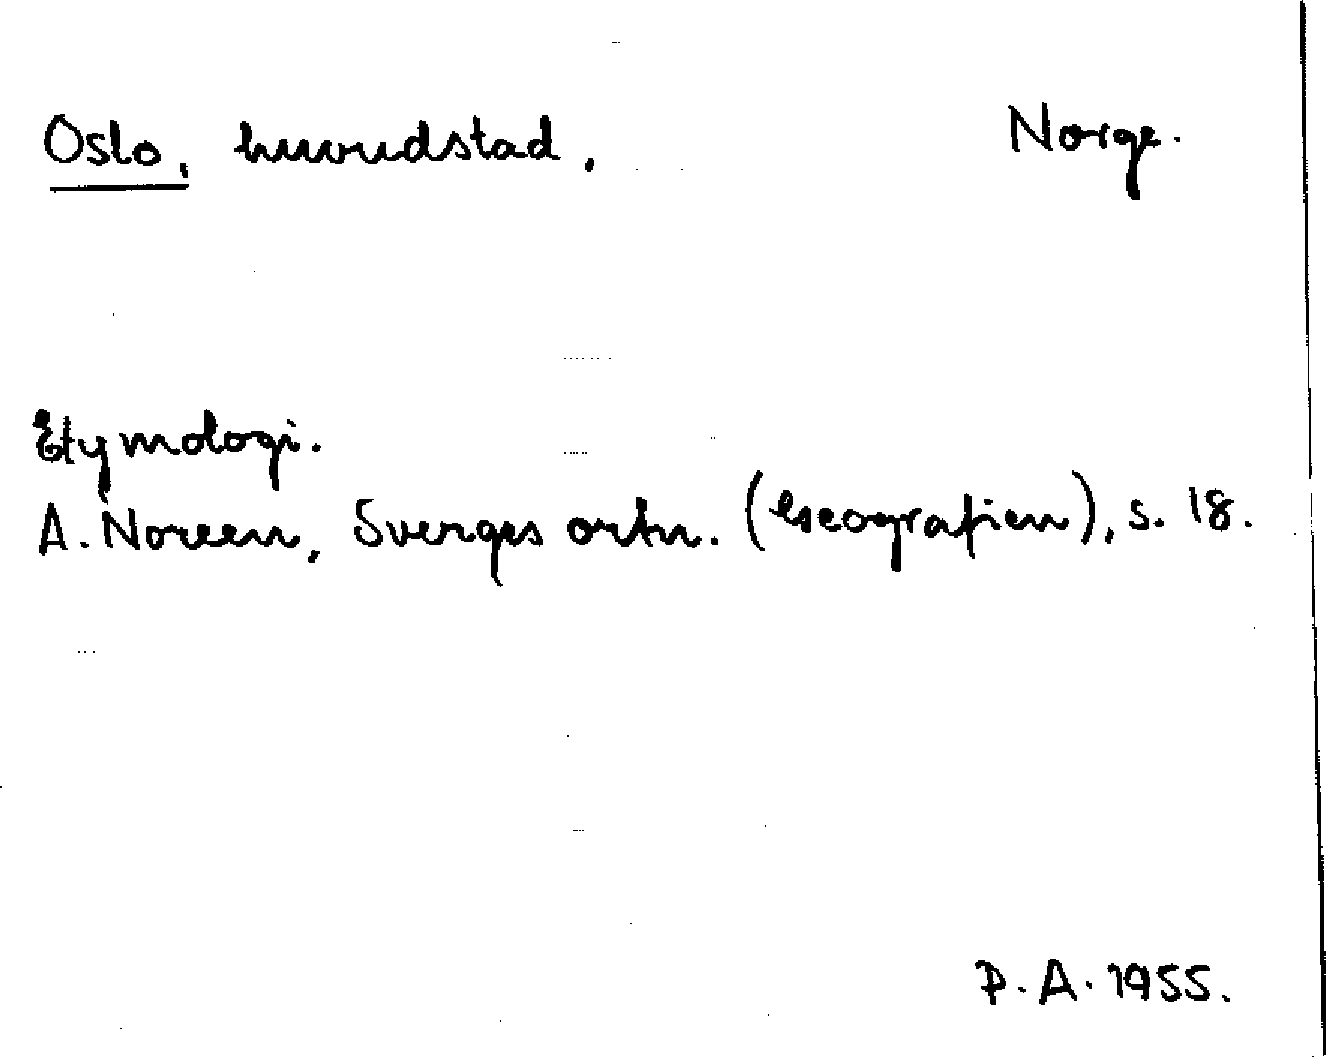 Oslo, huvudstad. Norge.
Etymologi.
A. Noreen, Sverges ortn. (Geografien), s. 18.
P. A. 1955.